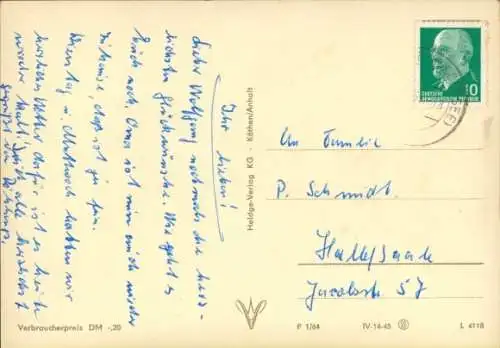 Ihr Lieben!
Lieber Wolfgang nochmals die herz-
lichsten Glückwünsche. Wie geht es
Euch noch. Oma ist nun auch wieder
zuhause, das ist ja fein.
Dienstag u. Mittwoch hatten wir
Wetter, dafür ist es heute
wieder kalt. Seid alle herzlichst
gegrüßt von
Heldge-Verlag KG · Köthen/Anhalt
DEUTSCHE
DEMOKRATISCHE REPUBLIK
10
An Familie
P. Schmidt.
Halle/Saale
Jacobstr. 57
Verbraucherpreis DM -,20
P 1/64 IV-14-45 L 4118